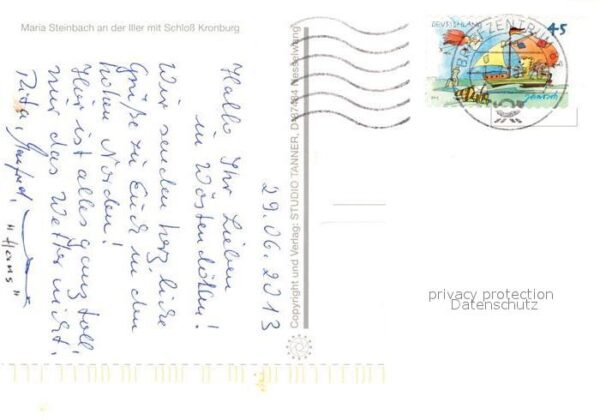 Maria Steinbach an der Iller mit Schloß Kronburg
29.06.2013
Hallo Ihr Lieben
in Wöstendöllen!
Wir senden herzliche
Grüße zu Euch in den
hohen Norden!
Hier ist alles ganz toll,
nur das Wetter nicht.
Rita, Manfred,
"Hans"
Copyright und Verlag: STUDIO TANNER, D-87484 Nesselwang
DEUTSCHLAND
45
BRIEFZENTRUM
privacy protection
Datenschutz